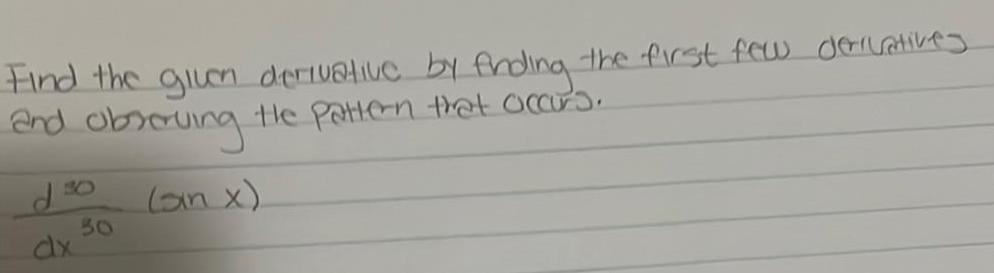 Find the given derivative by finding the first few derivatives
and observing the pattern that occurs.
d³⁰
(sin x)
dx³⁰